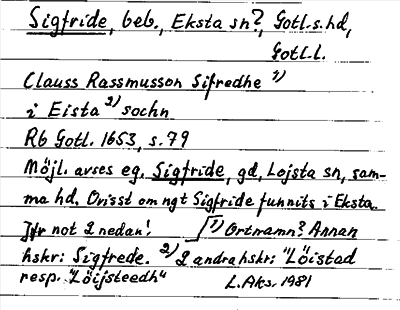 Sigfride, beb., Eksta sn?, Gotl.s.hd,
Gotl.l.
Clauss Rassmusson Sifredhe 1)
i Eista 2) sochn
Rb Gotl. 1653, s. 79
Möjl. avses eg. Sigfride, gd, Lojsta sn, sam-
ma hd. Ovisst om ngt Sigfride funnits i Eksta.
Jfr not 2 nedan! 1) Ortnamn? Annan
hskr: Sigfrede. 2) 2 andra hskr: "Löistad
resp. "Löijsteedh"
L.Aks. 1981